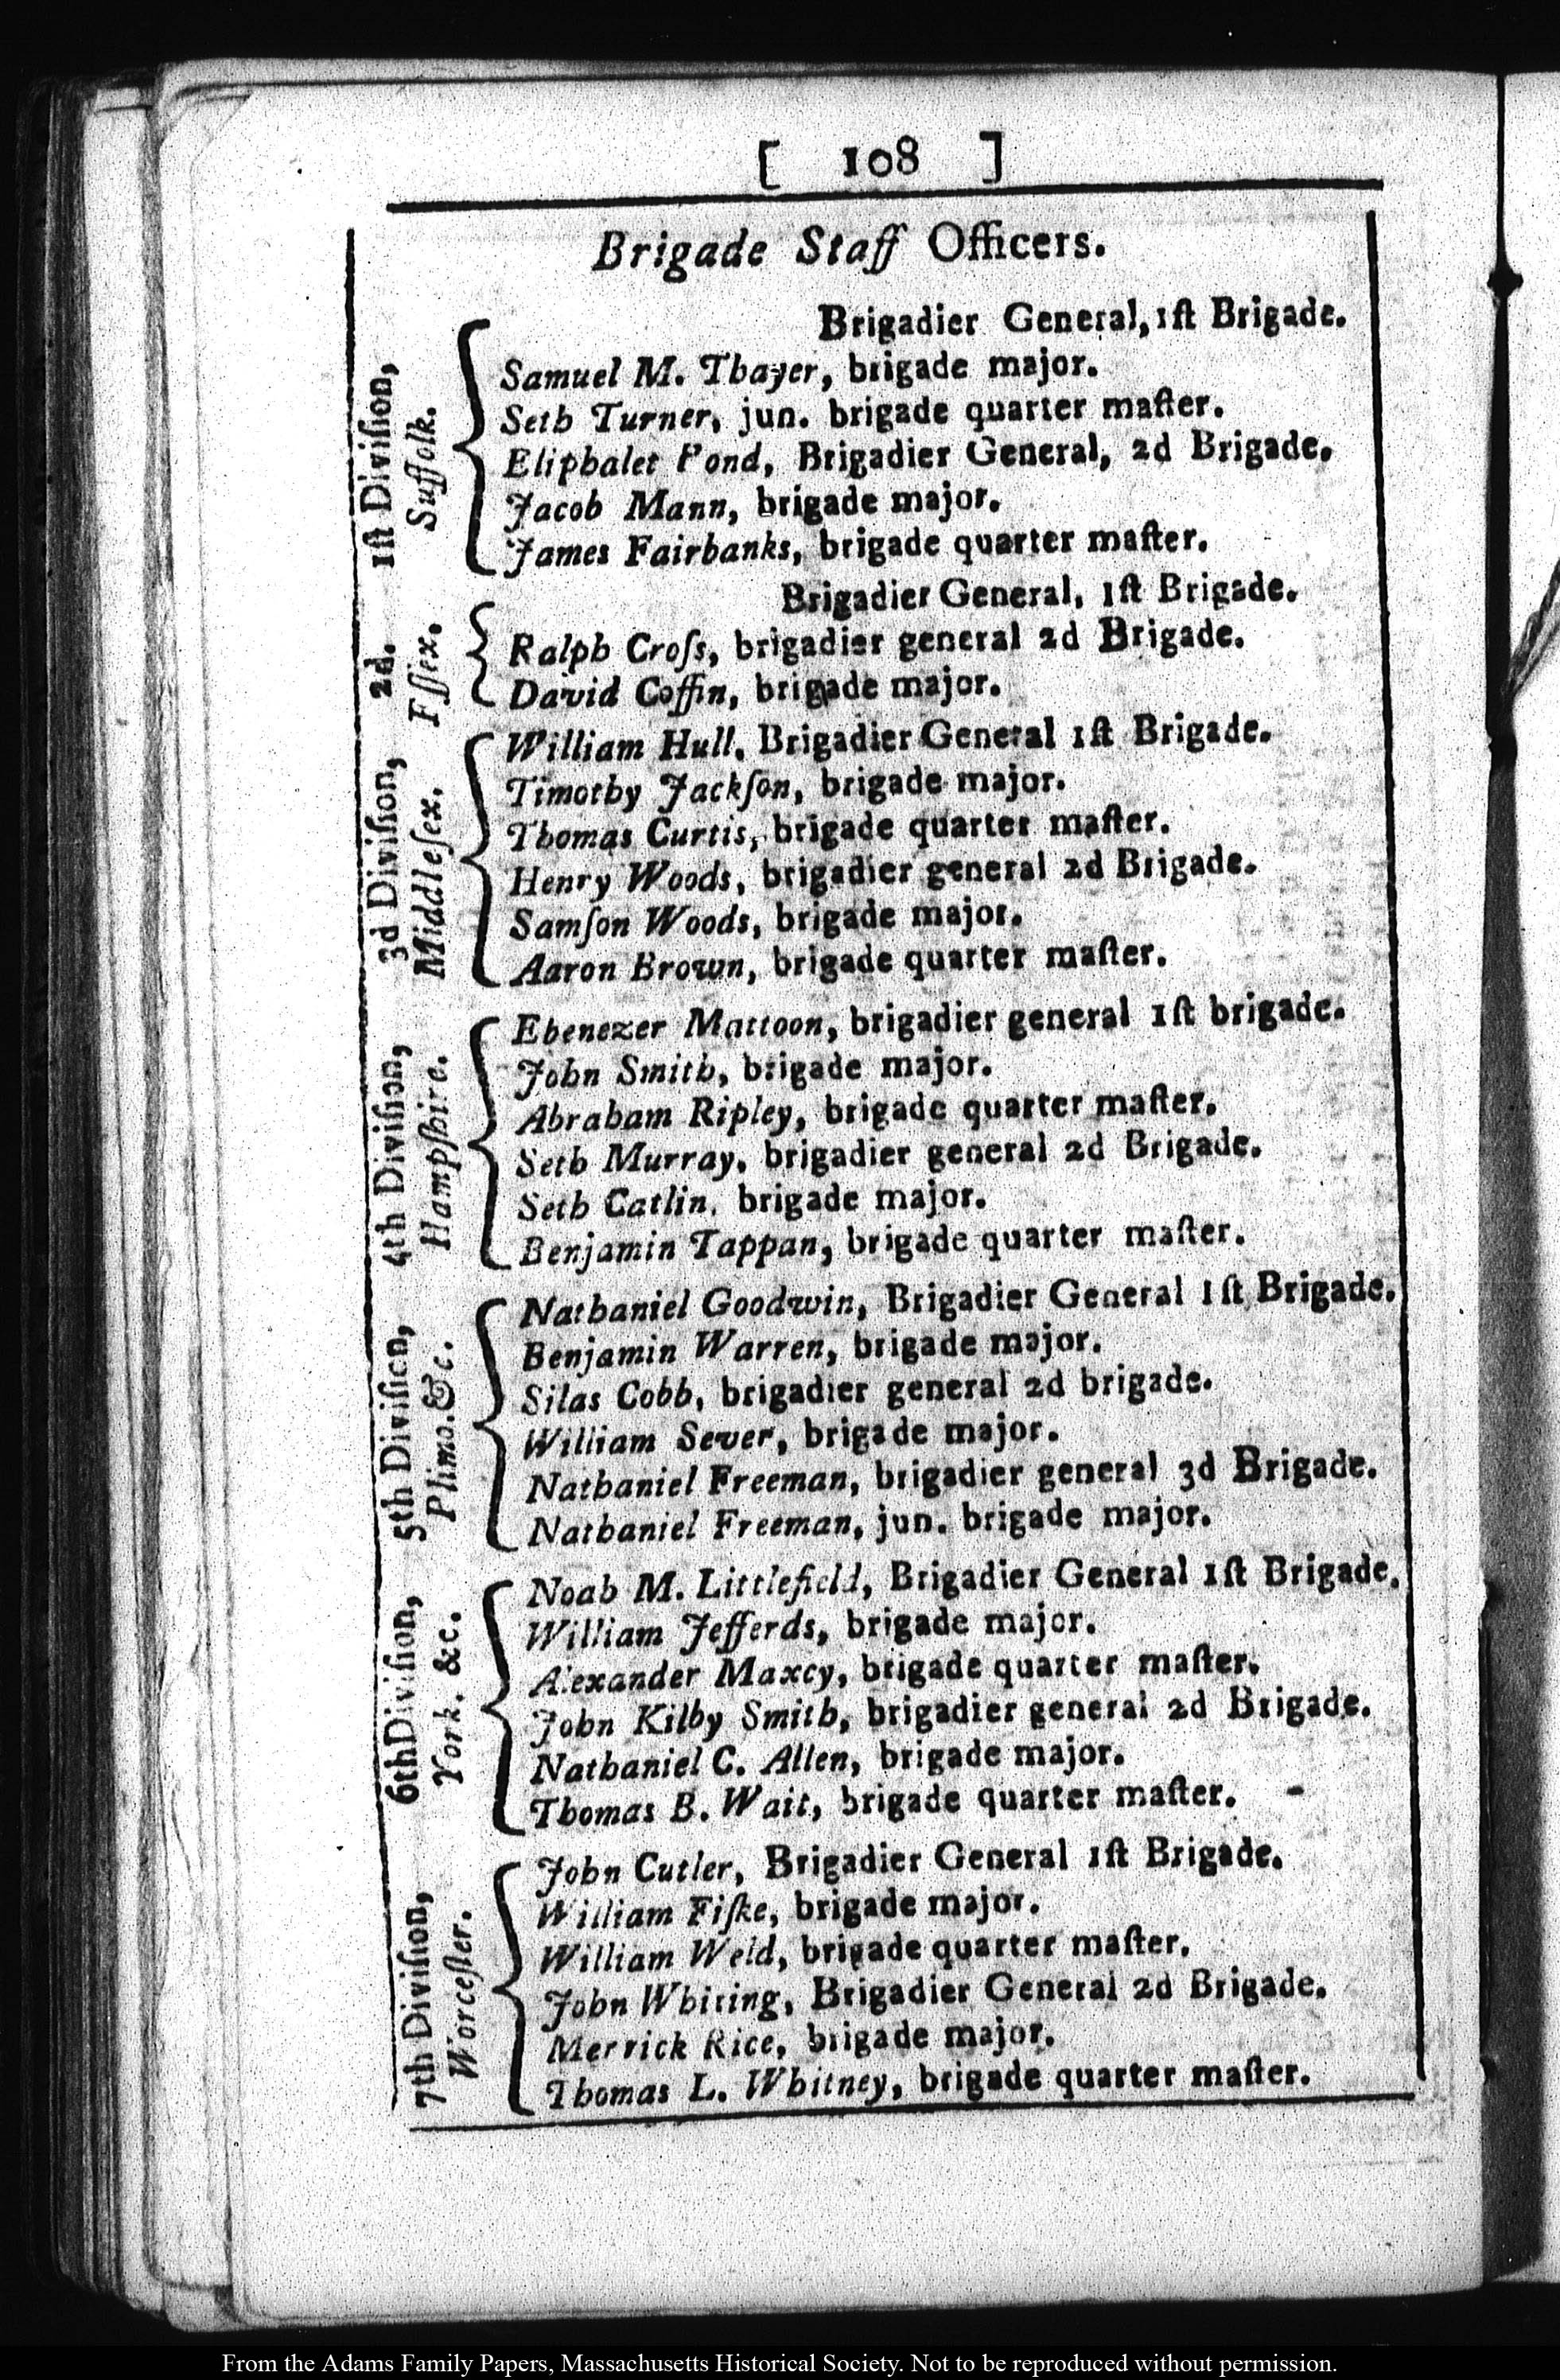 [ 108 ]
Brigade Staff Officers.
1ſt Diviſion,
Suffolk.
Brigadier General, 1ſt Brigade.
Samuel M. Thayer, brigade major.
Seth Turner, jun. brigade quarter maſter.
Eliphalet Pond, Brigadier General, 2d Brigade.
Jacob Mann, brigade major.
James Fairbanks, brigade quarter maſter.
2d.
Eſſex.
Brigadier General, 1ſt Brigade.
Ralph Croſs, brigadier general 2d Brigade.
David Coffin, brigade major.
3d Diviſion,
Middleſex.
William Hull, Brigadier General 1ſt Brigade.
Timothy Jackſon, brigade major.
Thomas Curtis, brigade quarter maſter.
Henry Woods, brigadier general 2d Brigade.
Samſon Woods, brigade major.
Aaron Brown, brigade quarter maſter.
4th Diviſion,
Hampſhire.
Ebenezer Mattoon, brigadier general 1ſt brigade.
John Smith, brigade major.
Abraham Ripley, brigade quarter maſter.
Seth Murray, brigadier general 2d Brigade.
Seth Catlin, brigade major.
Benjamin Tappan, brigade quarter maſter.
5th Diviſion,
Plimo. &c.
Nathaniel Goodwin, Brigadier General 1ſt Brigade.
Benjamin Warren, brigade major.
Silas Cobb, brigadier general 2d brigade.
William Sever, brigade major.
Nathaniel Freeman, brigadier general 3d Brigade.
Nathaniel Freeman, jun. brigade major.
6th Diviſion,
York. &c.
Noah M. Littlefield, Brigadier General 1ſt Brigade.
William Jefferds, brigade major.
Alexander Maxcy, brigade quarter maſter.
John Kilby Smith, brigadier general 2d Brigade.
Nathaniel C. Allen, brigade major.
Thomas B. Wait, brigade quarter maſter.
7th Diviſion,
Worceſter.
John Cutler, Brigadier General 1ſt Brigade.
William Fiſke, brigade major.
William Weld, brigade quarter maſter.
John Whiting, Brigadier General 2d Brigade.
Merrick Rice, brigade major.
Thomas L. Whitney, brigade quarter maſter.
From the Adams Family Papers, Massachusetts Historical Society. Not to be reproduced without permission.